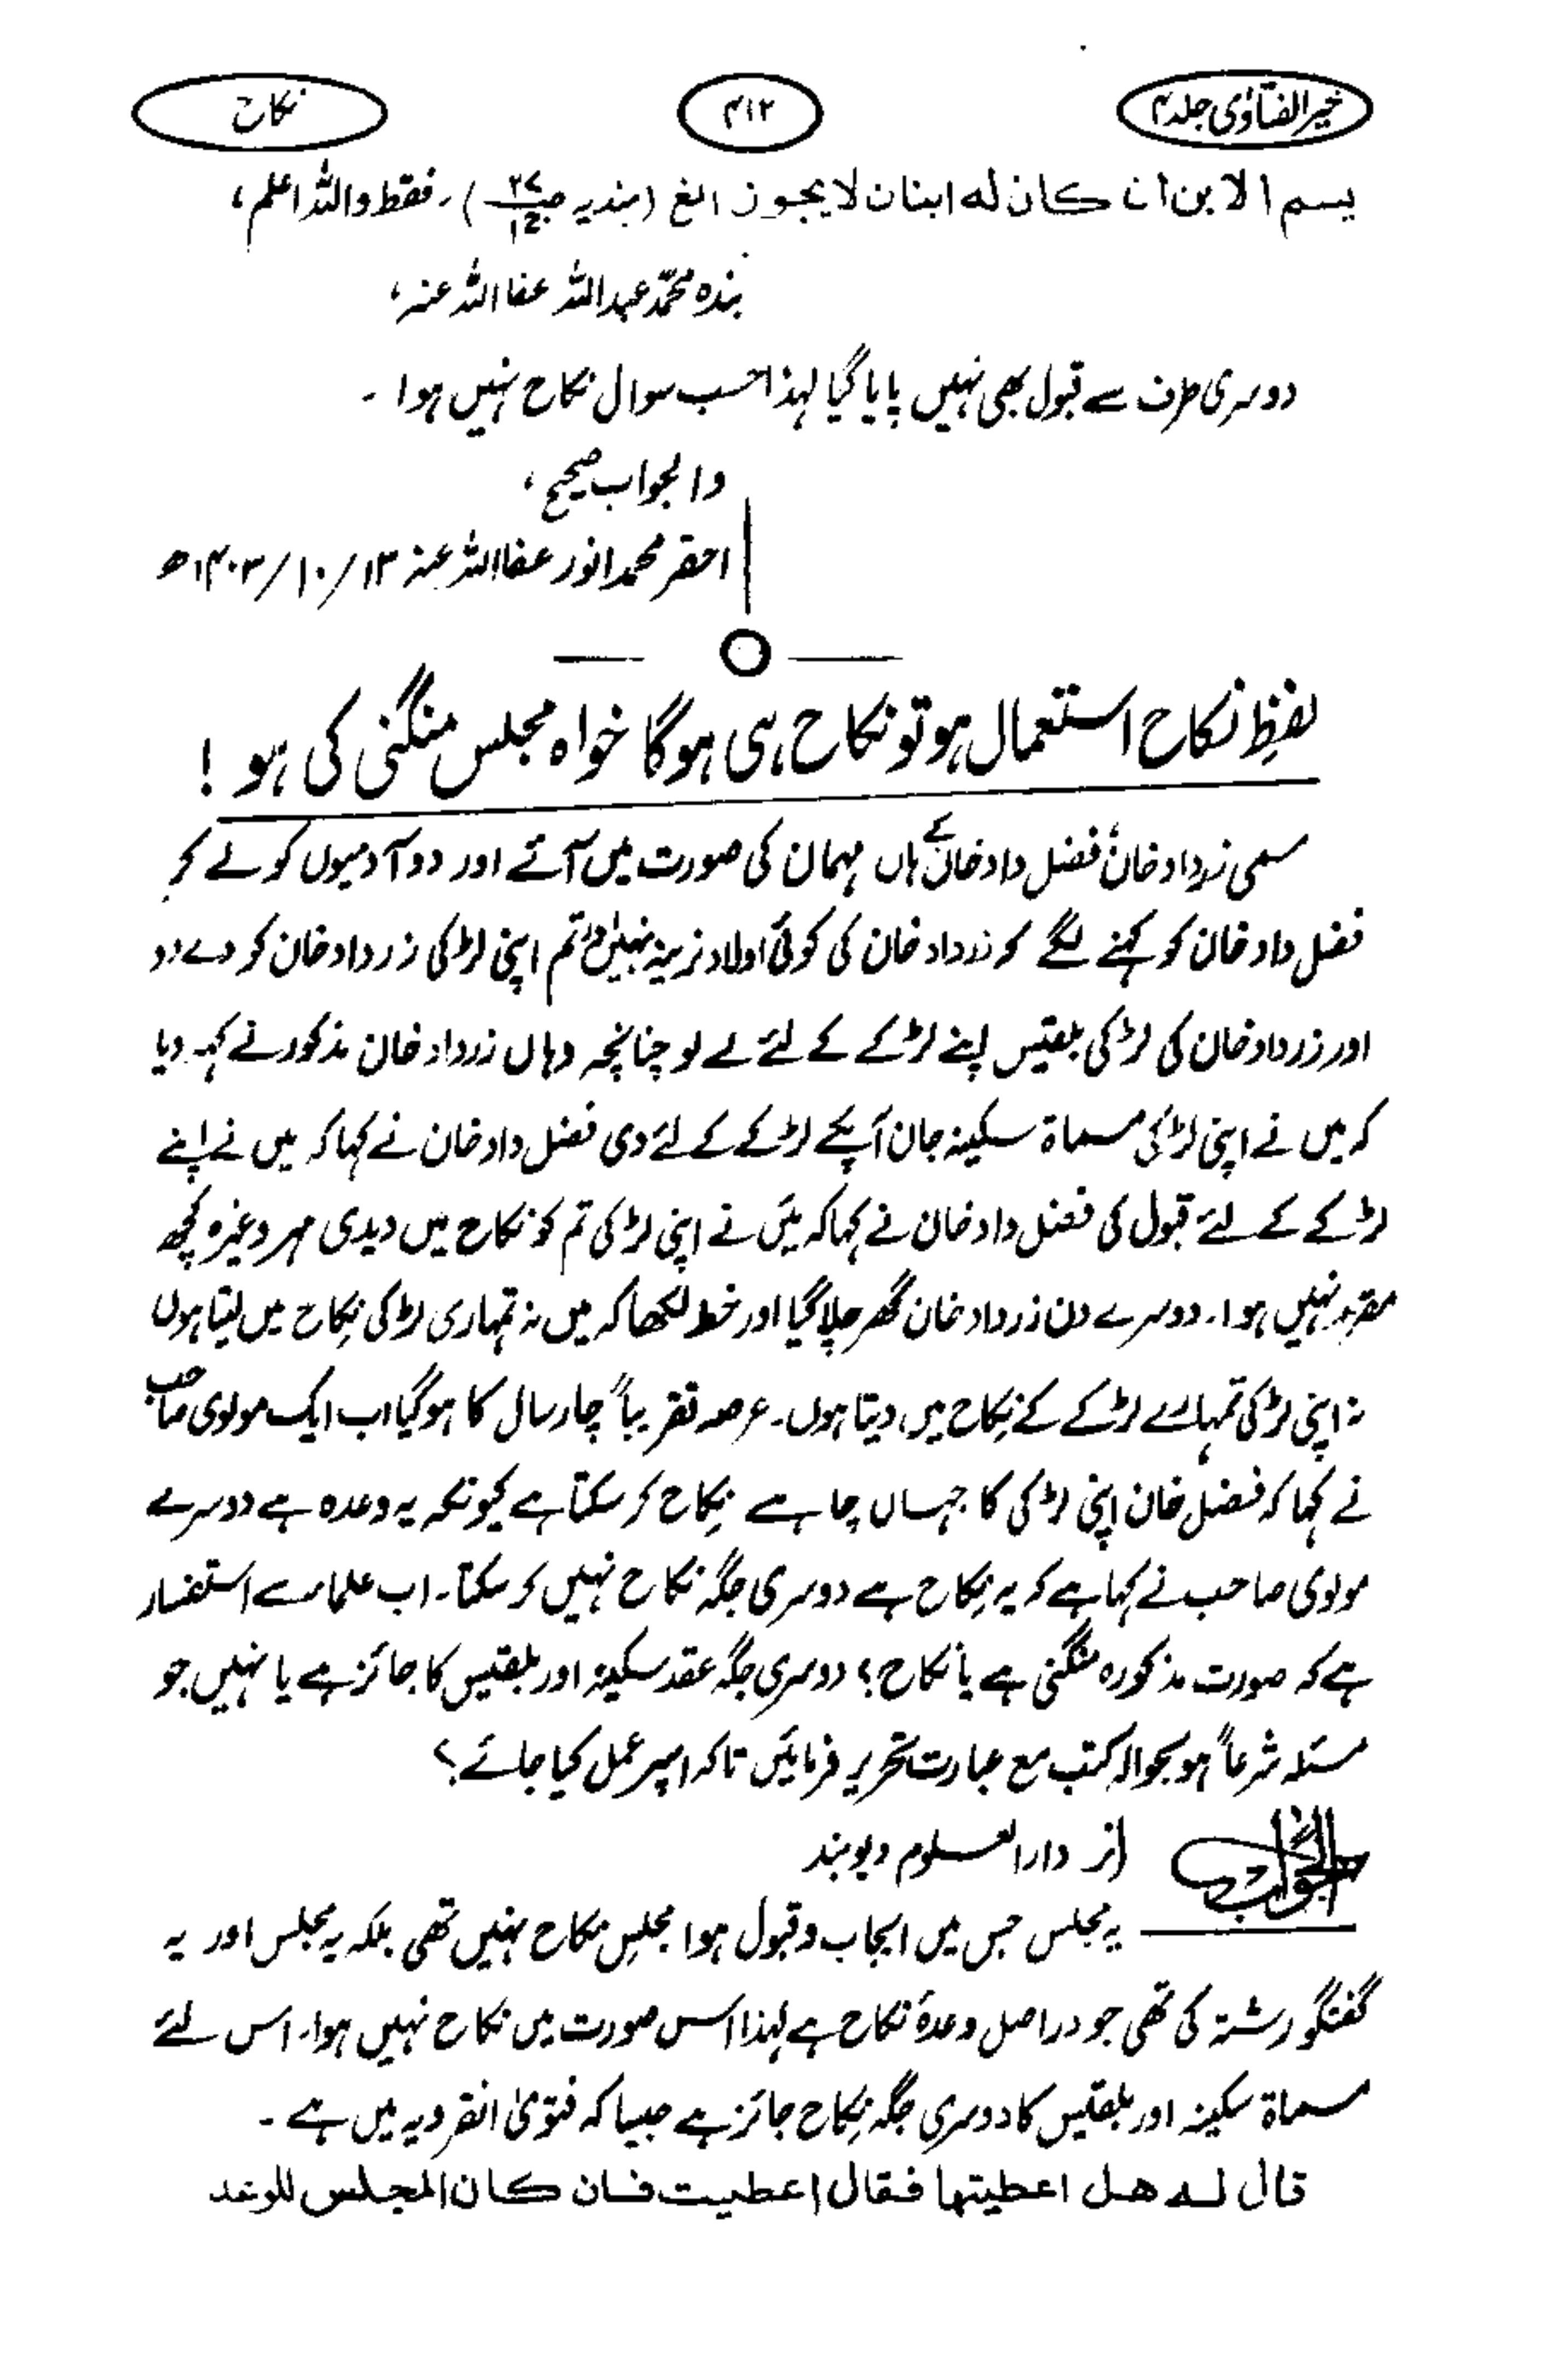 خیر الفتاوٰی جلد ۴
۴۱۲
نکاح
یسم الابن ان کان له ابنان لا یجوز الخ (ہندیہ ص) ۔ فقط واللہ اعلم،
بندہ محمد عبداللہ عفا اللہ عنہ،
دوسری طرف سے قبول بھی نہیں پایا گیا لہذا حسب سوال نکاح نہیں ہوا ۔
والجواب صحیح،
احقر محمد انور عفا اللہ عنہ ۱۳/۱۰/۱۴۰۳ھ
لفظِ نکاح استعمال ہو تو نکاح ہی ہوگا خواہ مجلس منگنی کی ہو !
سمی زرداد خان، فضل داد خان کے ہاں مہمان کی صورت میں آئے اور دو آدمیوں کو لے کر
فضل داد خان کو کہنے لگے کہ زرداد خان کی کوئی اولاد نرینہ نہیں تم اپنی لڑکی زرداد خان کو دے دو
اور زرداد خان کی لڑکی بلقیس اپنے لڑکے کے لئے لے لو چنانچہ وہاں زرداد خان مذکور نے کہہ دیا
کہ میں نے اپنی لڑکی مسماۃ سکینہ جان آپکے لڑکے کے لئے دی فضل داد خان نے کہا کہ میں نے اپنے
لڑکے کے لئے قبول کی فضل داد خان نے کہا کہ میں نے اپنی لڑکی تم کو نکاح میں دیدی مہر وغیرہ کچھ
مقرر نہیں ہوا۔ دوسرے دن زرداد خان گھر چلا گیا اور خط لکھا کہ میں نہ تمہاری لڑکی نکاح میں لیتا ہوں
نہ اپنی لڑکی تمہارے لڑکے کے نکاح میں دیتا ہوں۔ عرصہ تقریباً چار سال کا ہوگیا اب ایک مولوی صاحب
نے کہا کہ فضل خان اپنی لڑکی کا جہاں چاہے نکاح کر سکتا ہے کیونکہ یہ وعدہ ہے دوسرے
مولوی صاحب نے کہا ہے کہ یہ نکاح ہے دوسری جگہ نکاح نہیں کر سکتا۔ اب علماء سے استفسار
ہے کہ صورت مذکورہ منگنی ہے یا نکاح؟ دوسری جگہ عقد سکینہ اور بلقیس کا جائز ہے یا نہیں جو
مسئلہ شرعاً ہو بحوالہ کتب مع عبارت تحریر فرمائیں تاکہ اسپر عمل کیا جائے؟
الجواب از دارالعلوم دیوبند
یہ مجلس جس میں ایجاب و قبول ہوا مجلسِ نکاح نہیں تھی بلکہ یہ مجلس اور یہ
گفتگو رشتہ کی تھی جو دراصل وعدۂ نکاح ہے لہذا اس صورت میں نکاح نہیں ہوا۔ اس لئے
مسماۃ سکینہ اور بلقیس کا دوسری جگہ نکاح جائز ہے جیسا کہ فتویٰ انقرویہ میں ہے ۔
قال له هل اعطیتها فقال اعطیت فان کان المجلس للوعد